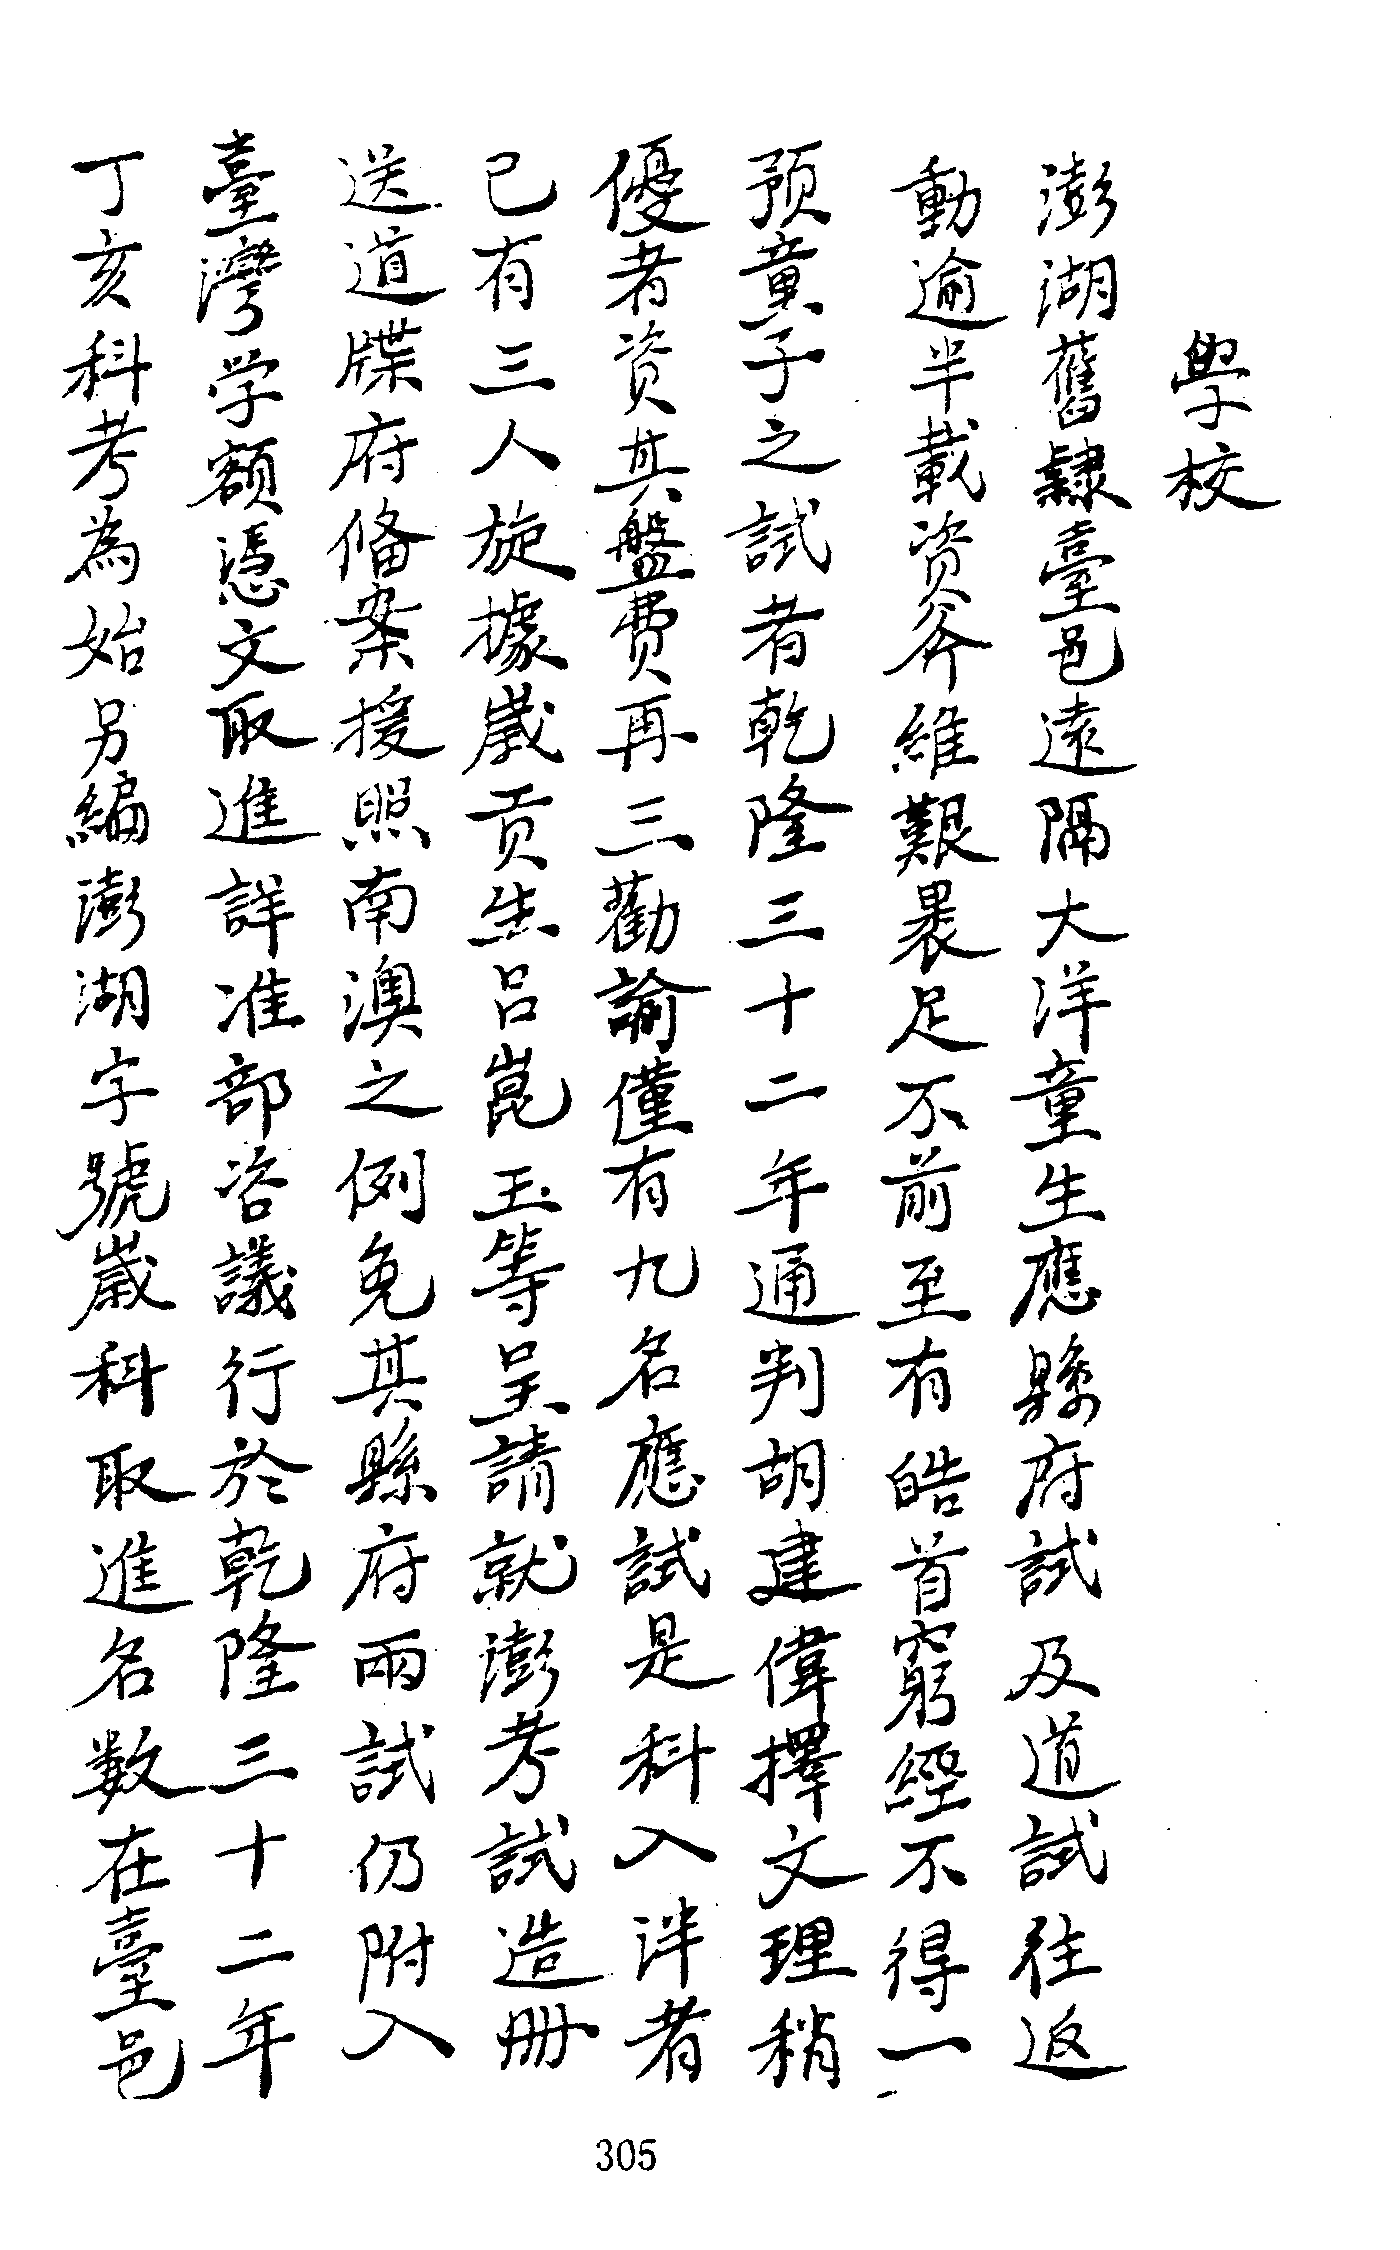 學校
澎湖舊隸臺邑遠隔大洋童生應縣府試及道試往返
動逾半載資斧維艱裹足不前至有皓首窮經不得一
預童子之試者乾隆三十二年通判胡建偉擇文理稍
優者資其盤費再三勸諭僅有九名應試是科入泮者
已有三人旋據歲貢生呂崑玉等呈請就澎考試造冊
送道牒府俻案援照南澳之例免其縣府兩試仍附入
臺灣学額憑文取進詳准部咨議行於乾隆三十二年
丁亥科考為始另編澎湖字號歲科取進名数在臺邑
305